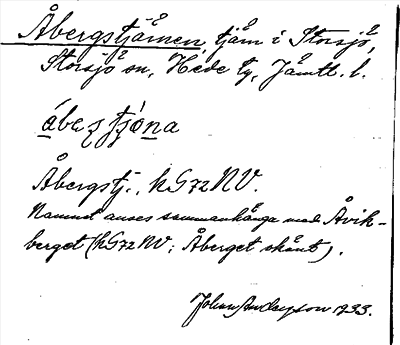 Åbergstjärnen, tjärn i Storsjö,
Storsjö sn, Hede tg, Jämtl. l.
Åbergstj., kG72NV.
Namnet anses sammanhänga med Åvik-
berget (kG72NV; Åberget skånt).
Johan Anderson 1933.